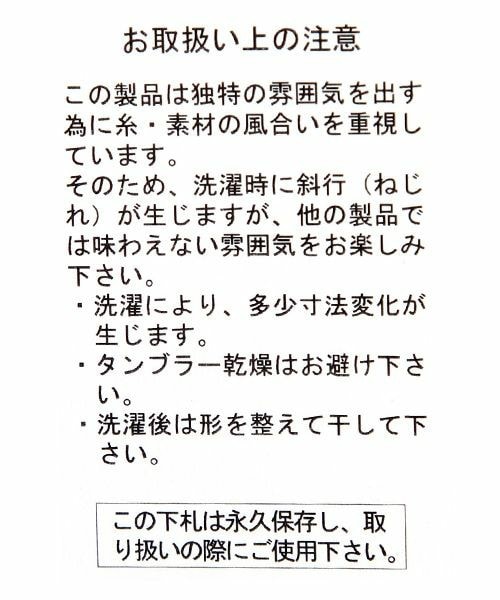 お取扱い上の注意
この製品は独特の雰囲気を出す
為に糸・素材の風合いを重視し
ています。
そのため、洗濯時に斜行（ねじ
れ）が生じますが、他の製品で
は味わえない雰囲気をお楽しみ
下さい。
・洗濯により、多少寸法変化が
生じます。
・タンブラー乾燥はお避け下さ
い。
・洗濯後は形を整えて干して下
さい。
この下札は永久保存し、取
り扱いの際にご使用下さい。